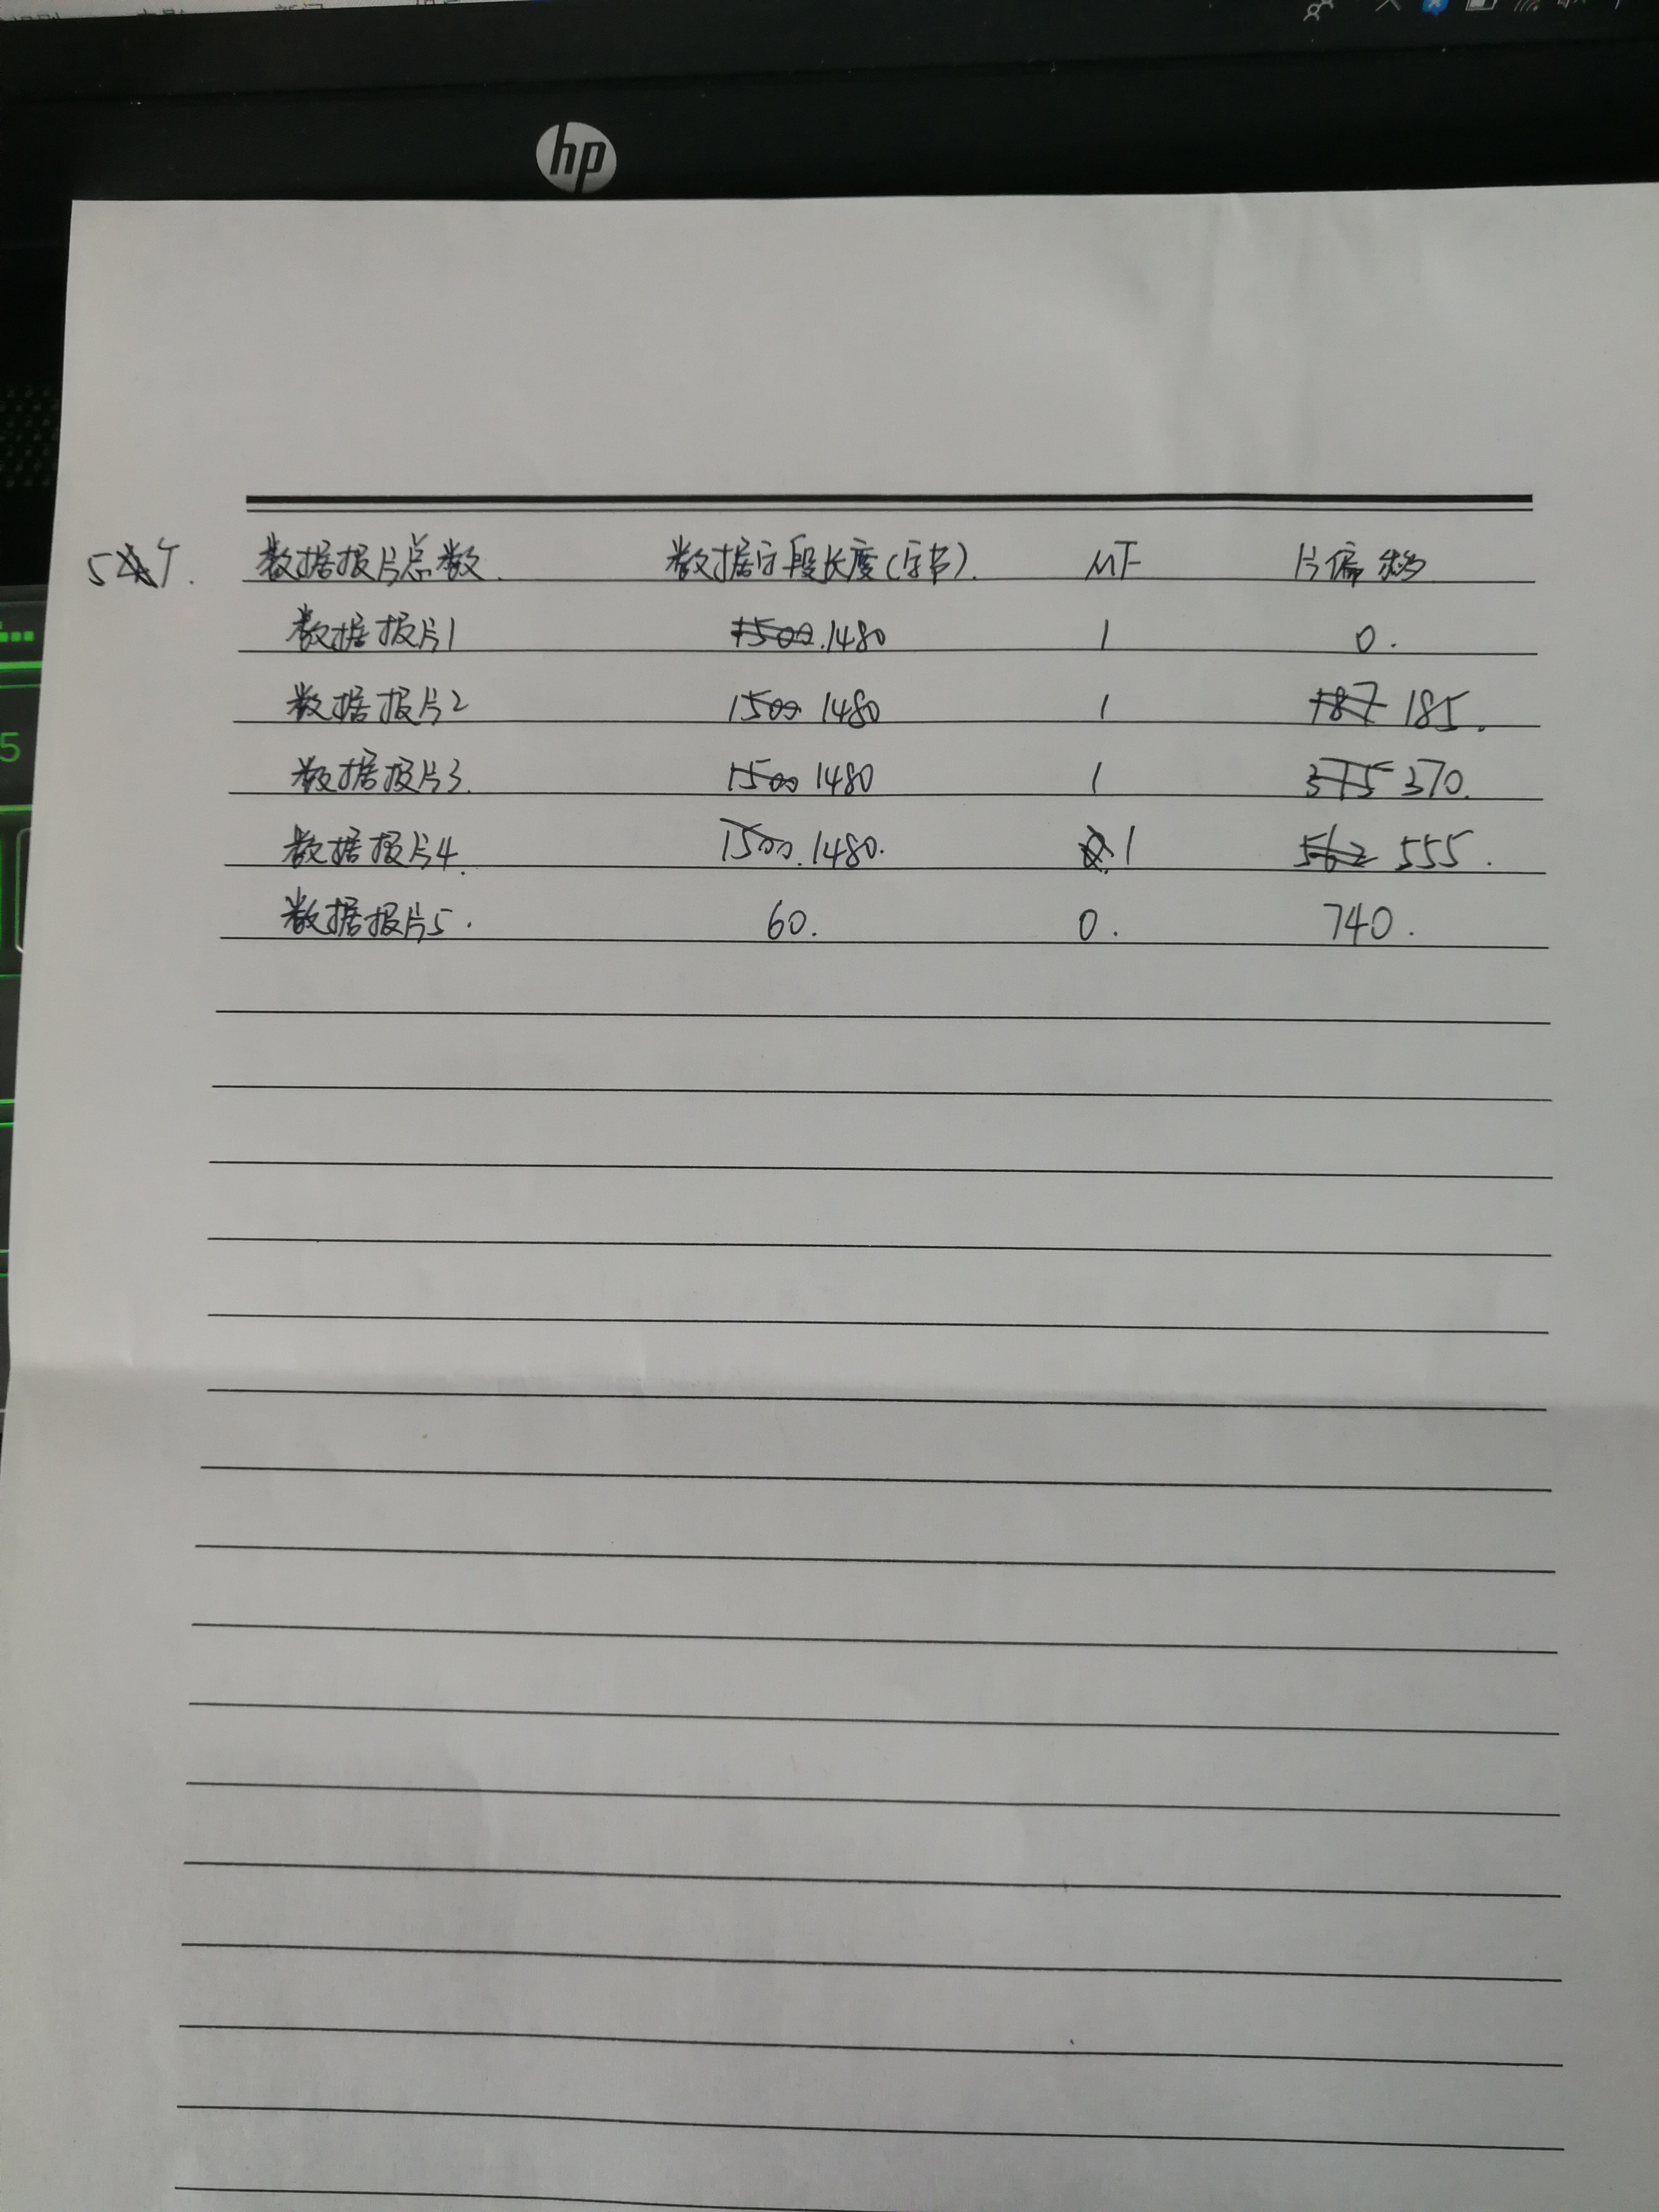 hp
5 个. 数据报片总数. 数据字段长度(字节). MF 片偏移
数据报片1 1500.1480 1 0.
数据报片2 1500 1480 1 187 185.
数据报片3. 1500 1480 1 375 370.
数据报片4. 1500.1480. 0.1 562 555.
数据报片5. 60. 0. 740.
5